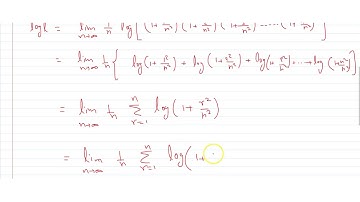 log l = lim n→∞ 1/n log[(1+1²/n²)(1+2²/n²)(1+3²/n²)......(1+n²/n²)]
= lim n→∞ 1/n { log(1+1²/n²) + log(1+2²/n²) + log(1+3²/n²)...+log(1+n²/n²)}
= lim n→∞ 1/n Σ r=1 n log(1+r²/n²)
= lim n→∞ 1/n Σ r=1 n log(1+